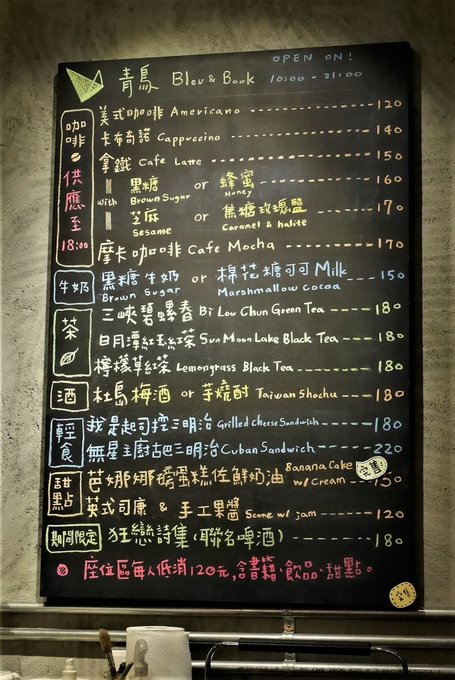 OPEN ON!
青鳥 Bleu & Book 10:00 - 21:00
咖啡供應至18:00
美式咖啡 Americano 120
卡布奇諾 Cappuccino 140
拿鐵 Cafe Latte 150
with 黑糖 Brown Sugar or 蜂蜜 Honey 160
芝麻 Sesame or 焦糖玫瑰鹽 Caramel & halite 170
摩卡咖啡 Cafe Mocha 170
牛奶
黑糖牛奶 or 棉花糖可可 Milk 150
Brown Sugar Marshmallow Cocoa
茶
三峽碧螺春 Bi Lou Chun Green Tea 180
日月潭紅玉紅茶 Sun Moon Lake Black Tea 180
檸檬草紅茶 Lemongrass Black Tea 180
酒
杜島梅酒 or 芋燒酎 Taiwan Shochu 180
輕食
我是起司控三明治 Grilled Cheese Sandwich 180
無星主廚古巴三明治 Cuban Sandwich 220
甜點
芭娜娜磅蛋糕佐鮮奶油 Banana Cake w/ Cream 完售
英式司康 & 手工果醬 Scone w/ jam 120
期間限定
狂戀詩集(聯名啤酒) 180
座位區每人低消120元,含書籍、飲品、甜點。
完售